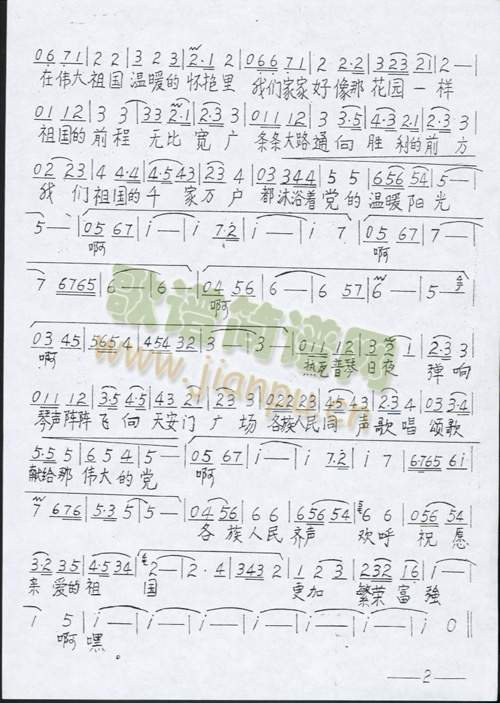 0671 | 2 2 | 3 2 3 | 2·1 2 | 066 71 | 2 2·2 | 323 21 | 2 — |
在伟大祖国 温暖的怀抱里 我们家家好像那花园一样
011 12 | 3 3 | 33 2·1 | 2·3 3 | 011 12 | 3 3·5 | 4·3 2·1 | 2·3 3 |
祖国的前程 无比宽广 条条大路通向胜利的前方
02 23 | 4 4·4 | 4·5 43 | 23 4 | 03 344 | 5 5 | 656 54 | 5 — |
我们祖国的千家万户 都沐浴着党的温暖阳光
5 — | 05 67 | i — | i 7·2 | i — | i 7 | 05 67 | 7 — |
啊 啊
7 6765 | 6 — | 6 — | 04 56 | 6 — | 6 57 | 6 — | 5 — |
啊
03 45 | 565 4 | 454 32 | 3 — | 3 — | 011 12 | 3 3 | 2·3 3 |
啊 热瓦普琴日夜弹响
011 12 | 3·5 4·5 | 43 21 | 23 3 | 022 23 | 45 43 | 23 4 | 03 3·4 |
琴声阵阵飞向天安门广场 各族人民同声歌唱 颂歌
5·5 5 | 6 5 4 | 5 5 | 05 67 | i — | i 7·2 | i 7 | 6·765 6i |
献给那伟大的党 啊
7 676 | 5·3 5 | 5 — | 04 56 | 6 6 | 656 54 | 6 6 | 056 54 |
各族人民齐声欢呼祝愿
3·2 35 | 4·5 34 | 2 — | 2·4 | 343 2 | 1 2 3 | 232 16 | i — |
亲爱的祖国 更加繁荣富强
i 5 | i — | i — | i — | i — | i — | i — | i 0 ||
啊嘿。
歌谱简谱网
www.jianpu.cn
— 2 —